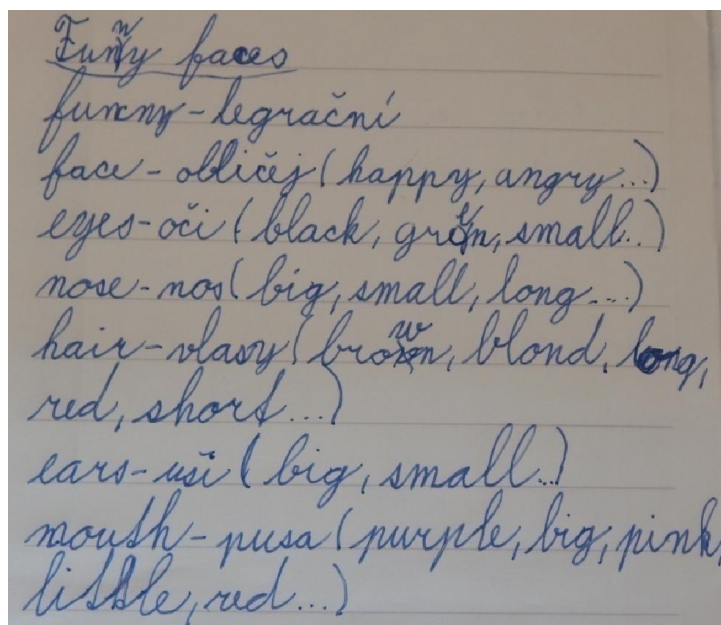 Funny faces
funny-legrační
face-obličej (happy, angry...)
eyes-oči (black, green, small..)
nose-nos (big, small, long...)
hair-vlasy (brown, blond, long,
red, short...)
ears-uši (big, small...)
mouth-pusa (purple, big, pink,
little, red...)